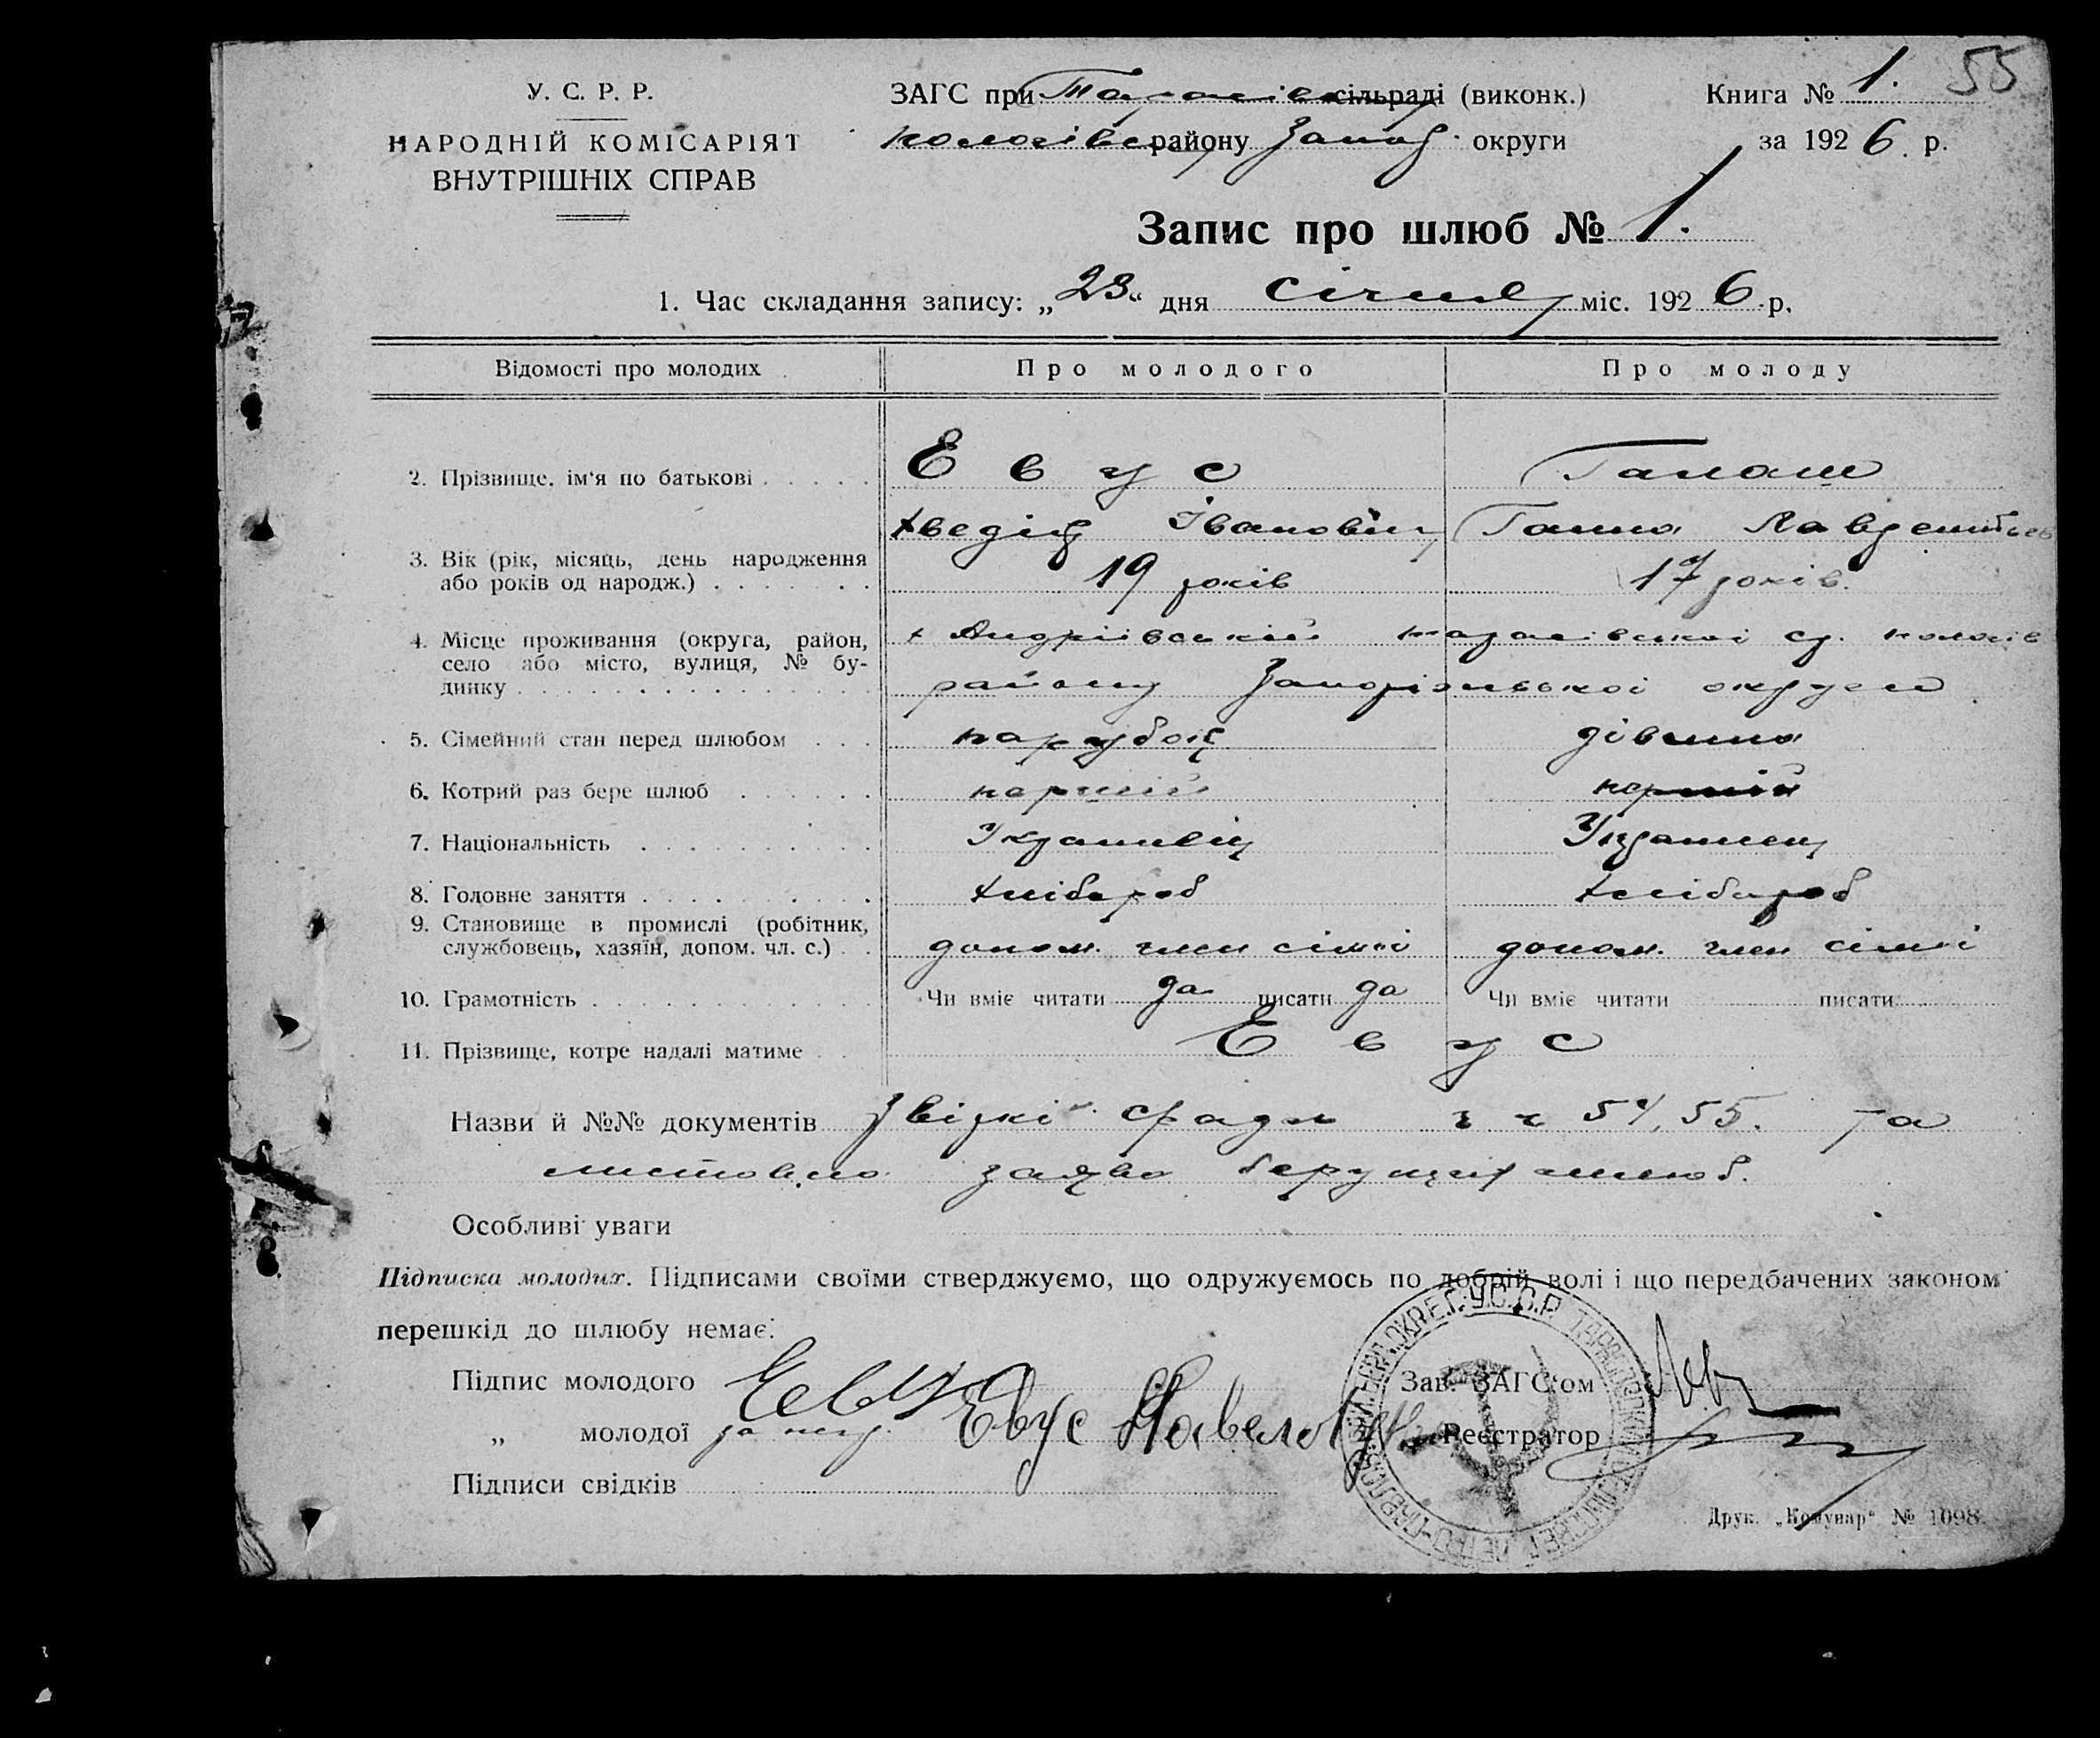 У. С. Р. Р.
НАРОДНІЙ КОМІСАРІЯТ
ВНУТРІШНІХ СПРАВ
ЗАГС при сільраді (виконк.)
району Запор. округи
Книга № 1. 55
за 1926 р.
Запис про шлюб № 1.
1. Час складання запису: „23“ дня січня міс. 1926 р.
Відомості про молодих Про молодого Про молоду
2. Прізвище, ім'я по батькові Евус Галаш
Хведір Іванович Ганна
3. Вік (рік, місяць, день народження
або років од народж.) 19 років 17 років.
4. Місце проживання (округа, район,
село або місто, вулиця, № бу-
динку
х Андріївський
району Запорізької округи
5. Сімейний стан перед шлюбом парубок дівчина
6. Котрий раз бере шлюб перший перший
7. Національність Українець Українец
8. Головне заняття хлібороб хлібороб
9. Становище в промислі (робітник,
службовець, хазяїн, допом. чл. с.) допом. член сімї допом. член сімї
10. Грамотність Чи вміє читати да писати да Чи вміє читати писати
11. Прізвище, котре надалі матиме Евус
Назви й №№ документів 54, 55. та
заява берущих шлюб.
Особливі уваги
Підписка молодих. Підписами своїми стверджуємо, що одружуємось по добрій волі і що передбачених законом
перешкід до шлюбу немає:
Підпис молодого Евус
„ молодої за негр. Евус
Підписи свідків
Зав. ЗАГС'ом
Реєстратор
Друк. „Комунар“ № 1098.